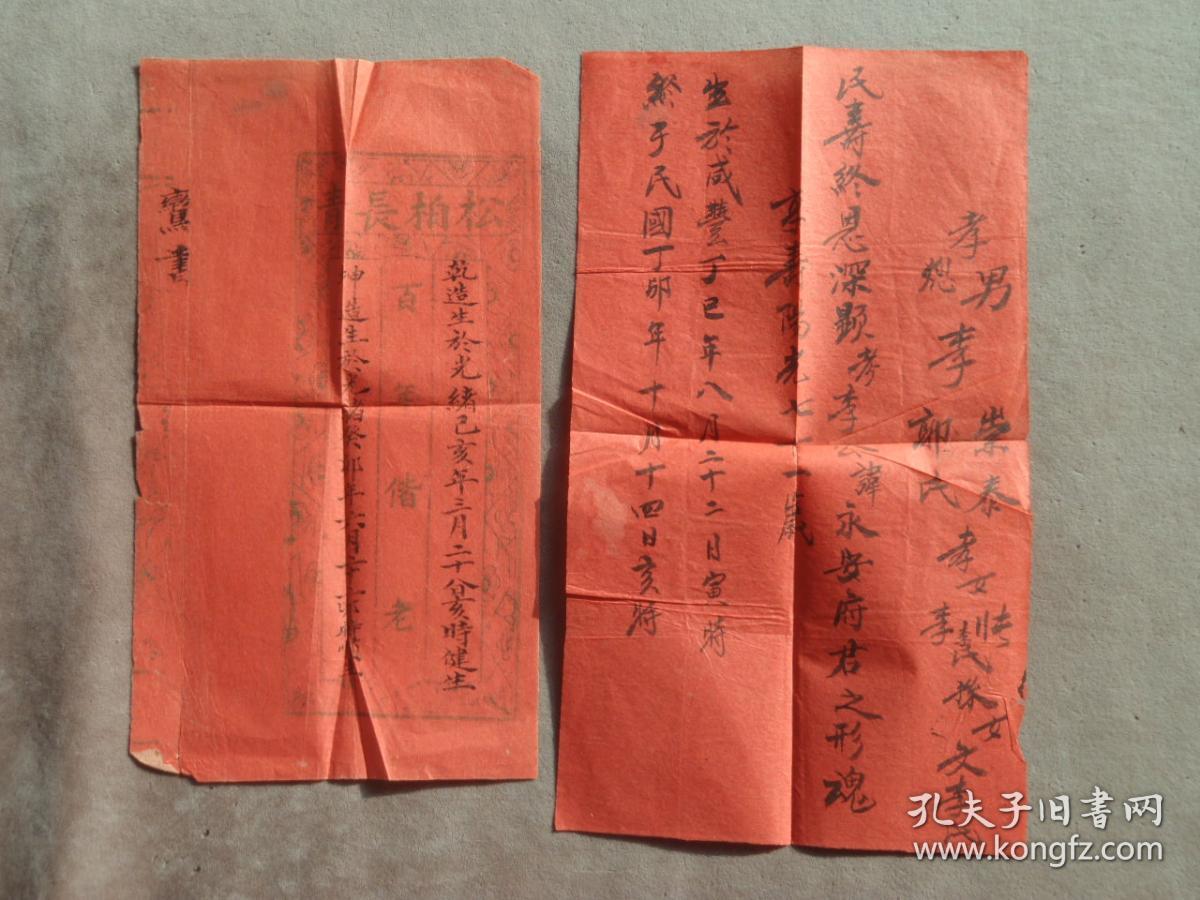 松柏長青
百年偕老
乾造生於光緒己亥年三月二十八亥時健生
坤造生於光緒癸卯年六月
鸞書
孝男 李崇泰 孝女 李氏 孫女 文李氏
媳 郭氏
民壽終恩深顯考李公諱永安府君之形魂
享壽陽光七十一歲
生於咸豐丁巳年八月二十二日寅時
終于民國丁卯年十月十四日亥時
孔夫子旧书网
www.kongfz.com